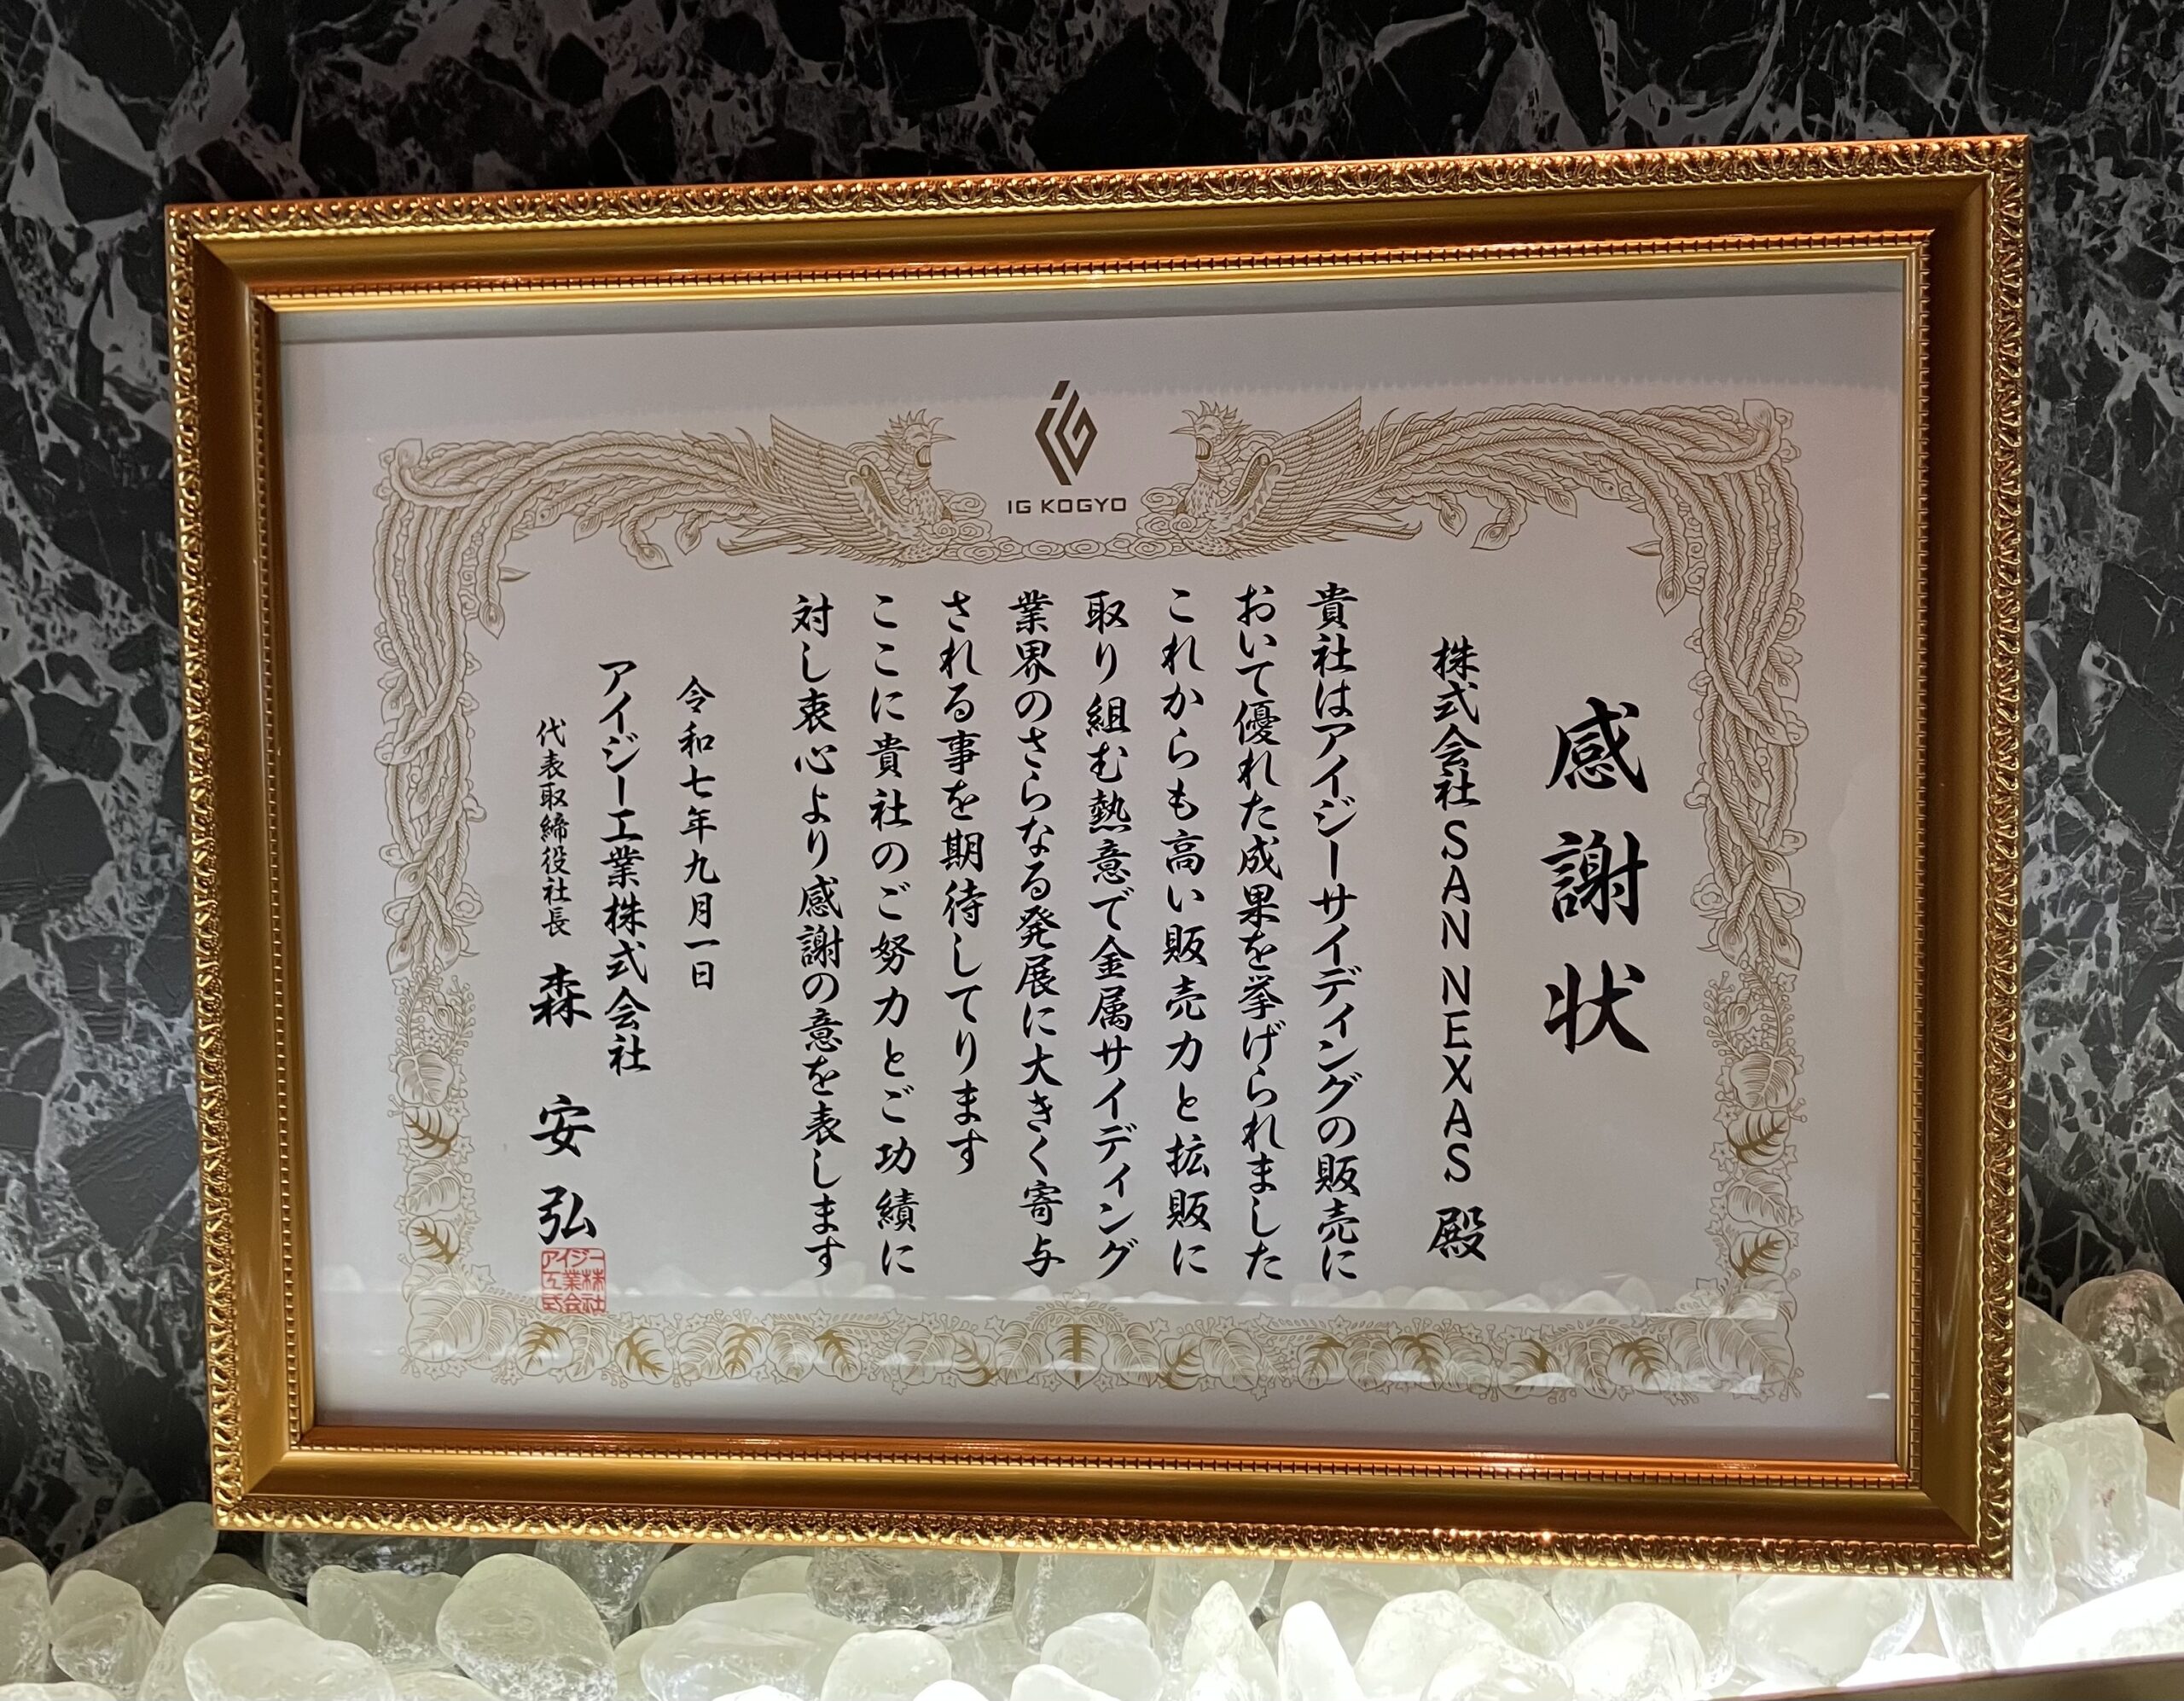 IG KOGYO
感謝状
株式会社 SAN NEXAS 殿
貴社はアイジーサイディングの販売に
おいて優れた成果を挙げられました
これからも高い販売力と拡販に
取り組む熱意で金属サイディング
業界のさらなる発展に大きく寄与
される事を期待してります
ここに貴社のご努力とご功績に
対し衷心より感謝の意を表します
令和七年九月一日
アイジー工業株式会社
代表取締役社長 森 安弘
アイジー
工業株
式会社